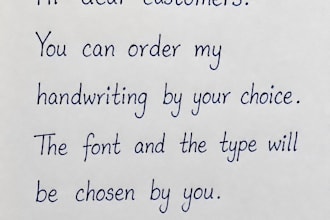 Hi dear customers.
You can order my
handwriting by your choice.
The font and the type will
be chosen by you.